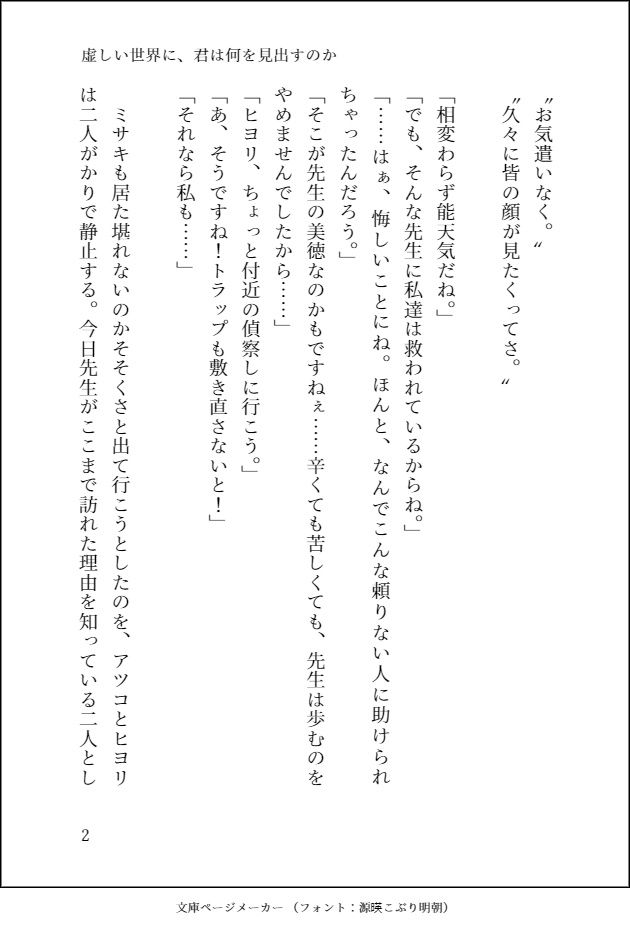 虚しい世界に、君は何を見出すのか
〝お気遣いなく。〟
〝久々に皆の顔が見たくってさ。〟
「相変わらず能天気だね。」
「でも、そんな先生に私達は救われているからね。」
「……はぁ、悔しいことにね。ほんと、なんでこんな頼りない人に助けられ
ちゃったんだろう。」
「そこが先生の美徳なのかもですねぇ……辛くても苦しくても、先生は歩むのを
やめませんでしたから……」
「ヒヨリ、ちょっと付近の偵察しに行こう。」
「あ、そうですね！トラップも敷き直さないと！」
「それなら私も……」
ミサキも居た堪れないのかそそくさと出て行こうとしたのを、アツコとヒヨリ
は二人がかりで静止する。今日先生がここまで訪れた理由を知っている二人とし
2
文庫ページメーカー（フォント：源暎こぶり明朝）